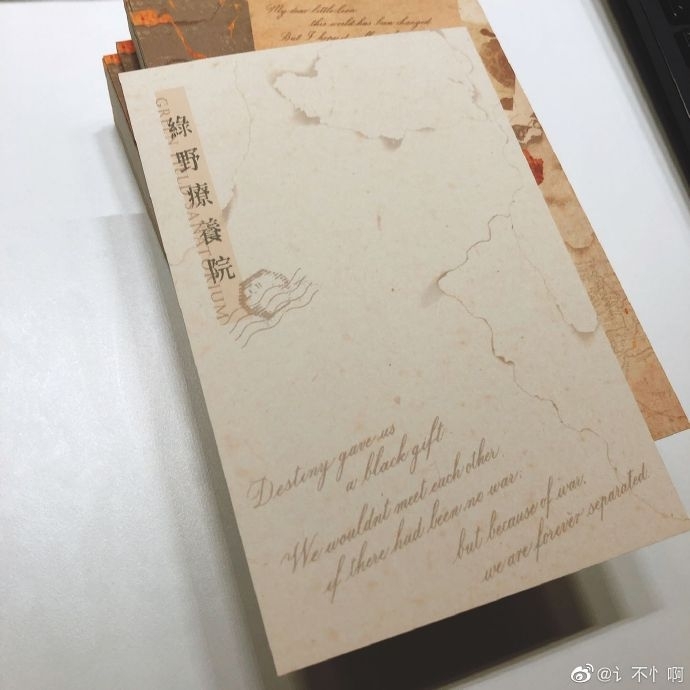 My dear little lion
this world has been changed
But I
綠野療養院
GREEN FIELD SANATORIUM
Destiny gave us
a black gift.
We wouldn't meet each other
if there had been no war.
but because of war,
we are forever separated.